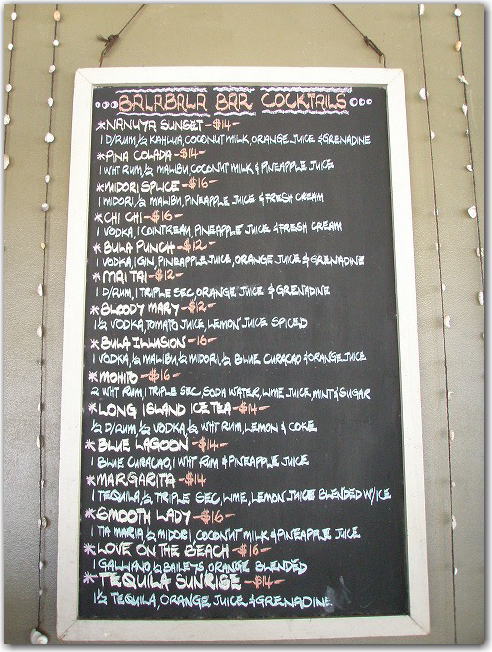 BALABALA BAR COCKTAILS
*NANUYA SUNSET -$14-
1 D/RUM, ½ KAHLUA, COCONUT MILK, ORANGE JUICE & GRENADINE
*PINA COLADA -$14-
1 WHT RUM, ½ MALIBU, COCONUT MILK & PINEAPPLE JUICE
*MIDORI SPLICE -$16-
1 MIDORI, ½ MALIBU, PINEAPPLE JUICE & FRESH CREAM
*CHI CHI -$16-
1 VODKA, 1 COINTREAU, PINEAPPLE JUICE & FRESH CREAM
*BULA PUNCH -$12-
1 VODKA, 1 GIN, PINEAPPLE JUICE, ORANGE JUICE & GRENADINE
*MAI TAI -$12-
1 D/RUM, 1 TRIPLE SEC ORANGE JUICE & GRENADINE
*BLOODY MARY -$12-
1½ VODKA, TOMATO JUICE, LEMON JUICE SPICED
*BULA ILLUSION -16-
1 VODKA, ½ MALIBU, ½ MIDORI, ½ BLUE CURACAO & ORANGE JUICE
*MOHITO -$16-
2 WHT RUM, 1 TRIPLE SEC, SODA WATER, LIME JUICE, MINT & SUGAR
*LONG ISLAND ICE TEA -$14-
½ D/RUM, ½ VODKA, ½ WHT RUM, LEMON & COKE
*BLUE LAGOON -$14-
1 BLUE CURACAO, 1 WHT RUM & PINEAPPLE JUICE
*MARGARITA -$14
1 TEQUILA, ½ TRIPLE SEC, LIME, LEMON JUICE BLENDED W/ICE
*SMOOTH LADY -$16-
1 TIA MARIA ½ MIDORI, COCONUT MILK & PINEAPPLE JUICE
*LOVE ON THE BEACH -$16-
1 GALLIANO, ½ BAILEYS, ORANGE BLENDED
*TEQUILA SUNRISE -$14-
1½ TEQUILA, ORANGE JUICE & GRENADINE